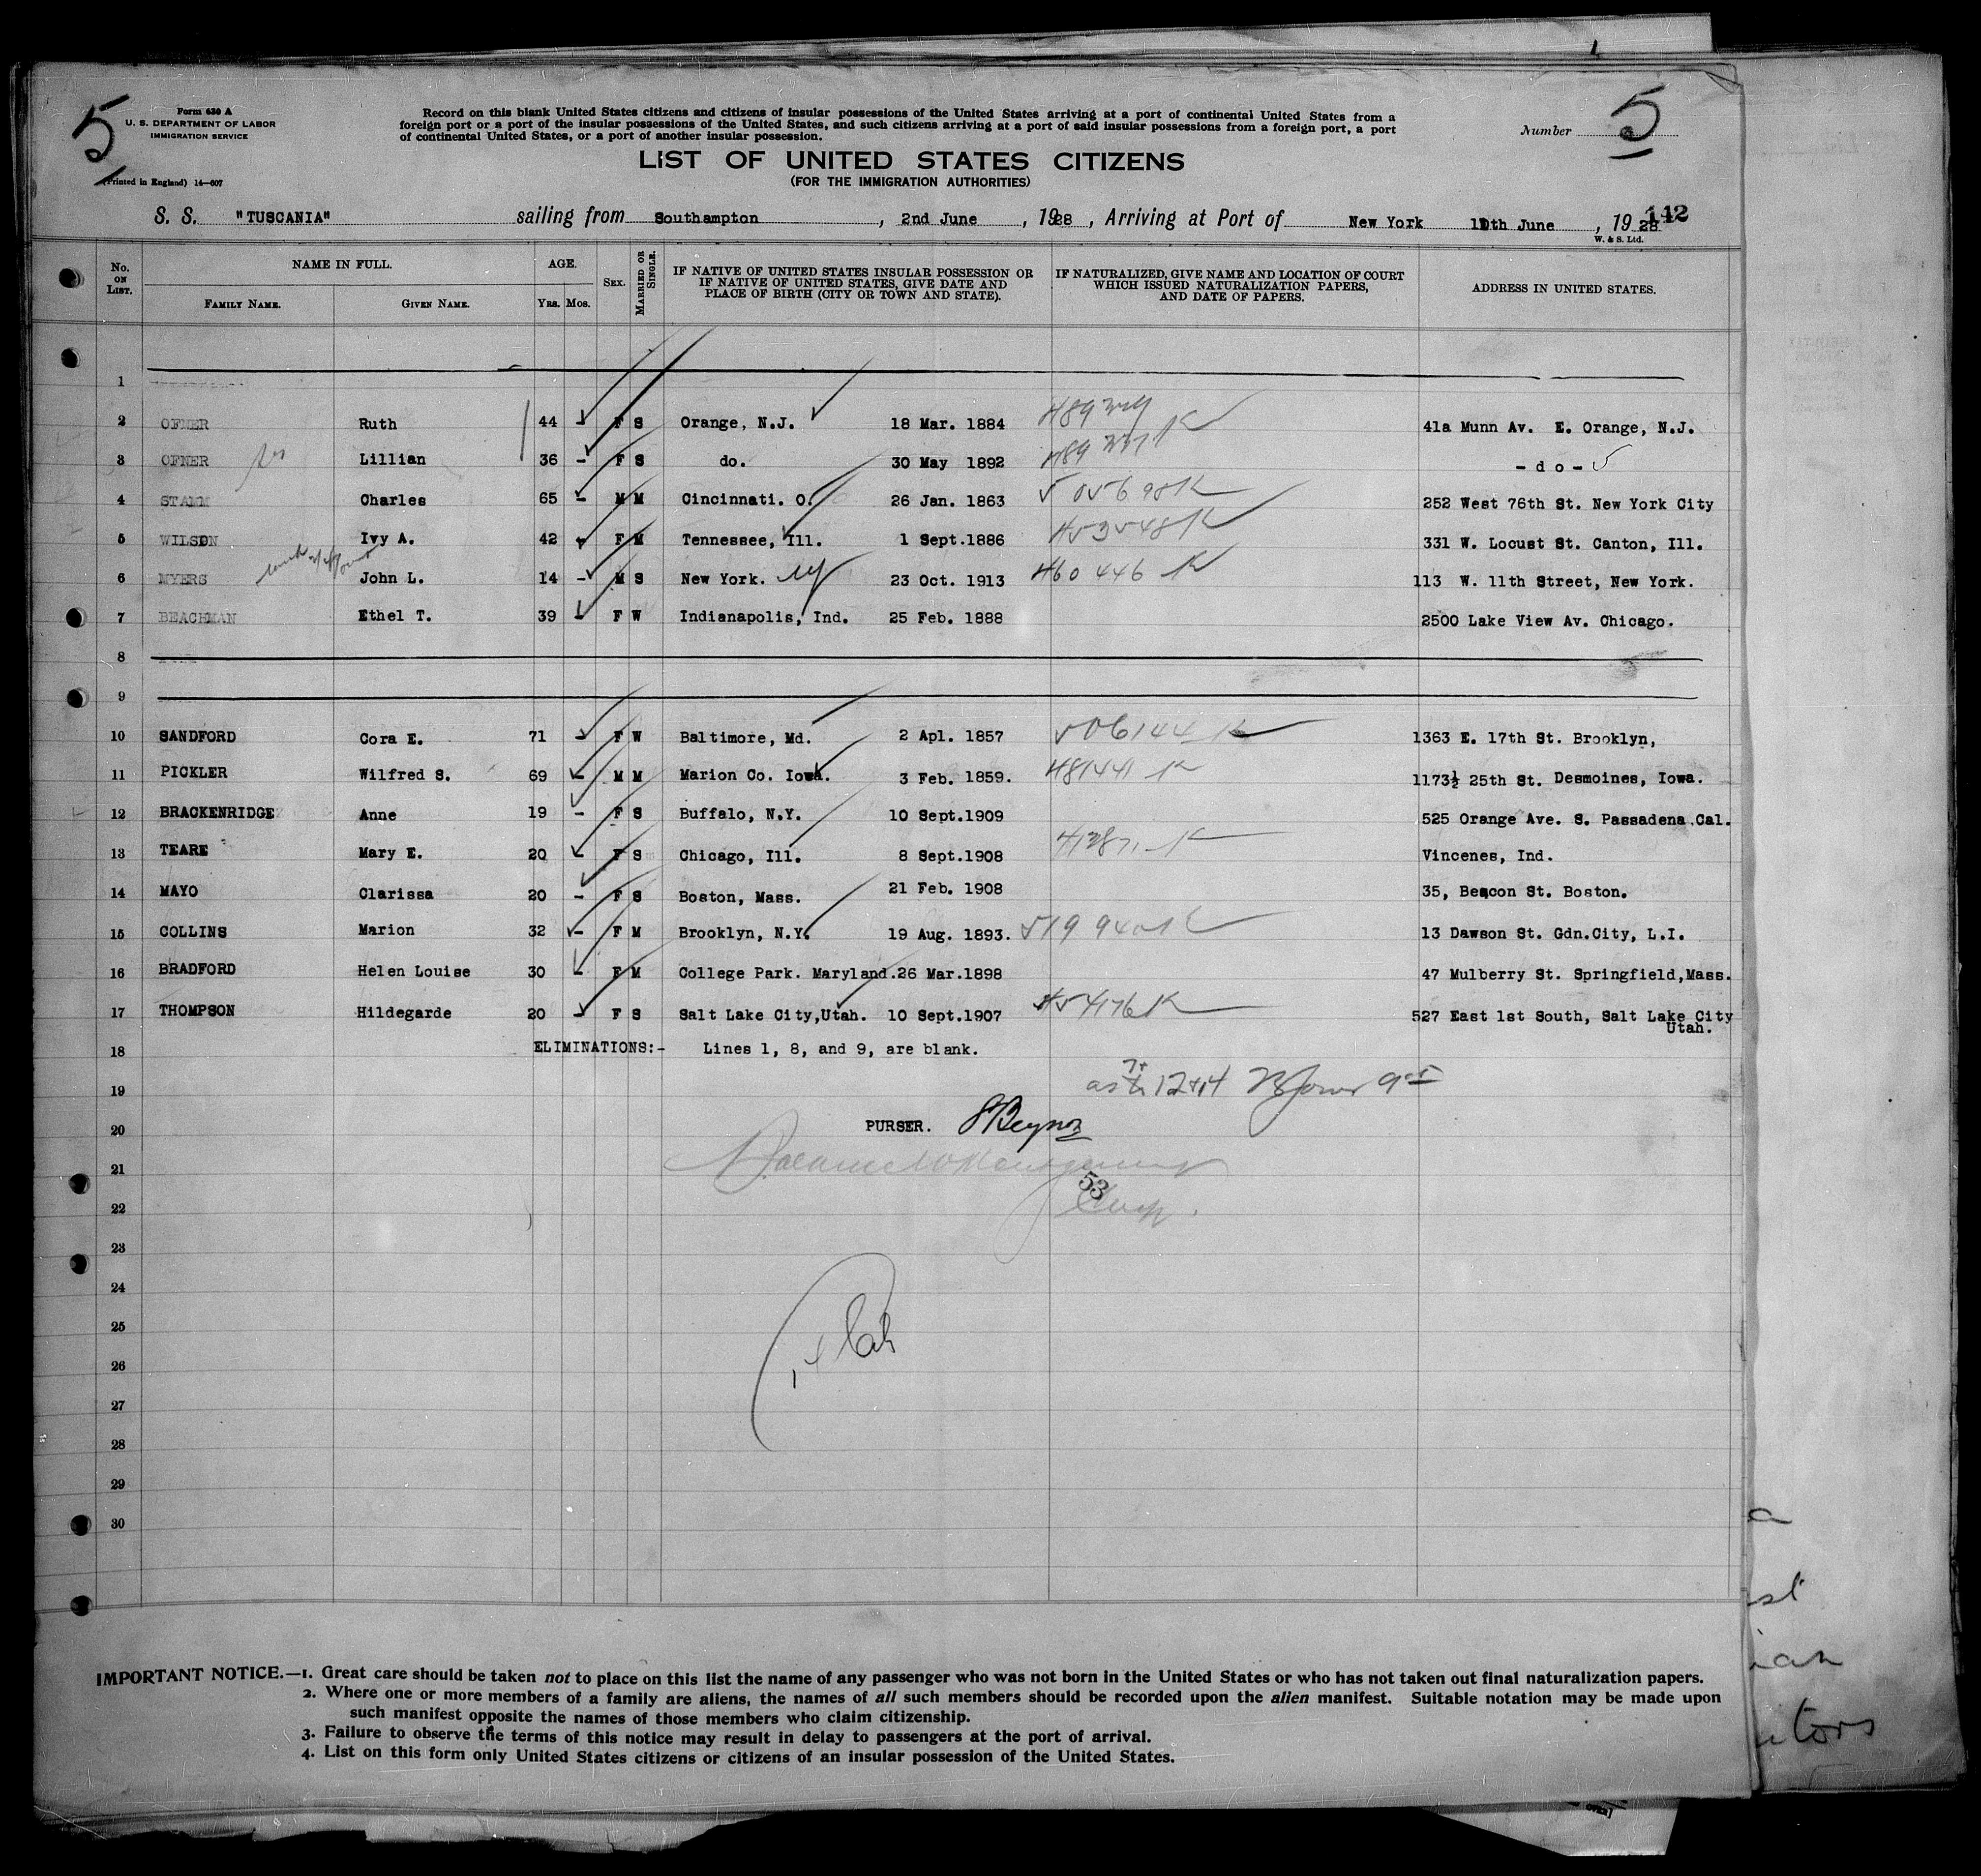 5
Form 630 A
U. S. DEPARTMENT OF LABOR
IMMIGRATION SERVICE
(Printed in England) 14—607
Record on this blank United States citizens and citizens of insular possessions of the United States arriving at a port of continental United States from a
foreign port or a port of the insular possessions of the United States, and such citizens arriving at a port of said insular possessions from a foreign port, a port
of continental United States, or a port of another insular possession.
Number 5
LIST OF UNITED STATES CITIZENS
(FOR THE IMMIGRATION AUTHORITIES)
142
S. S. "TUSCANIA" sailing from Southampton, 2nd June, 1928, Arriving at Port of New York 10th June, 1928
W. & S. Ltd.
No. ON LIST. NAME IN FULL. FAMILY NAME. GIVEN NAME. AGE. YRS. MOS. SEX. MARRIED OR SINGLE. IF NATIVE OF UNITED STATES INSULAR POSSESSION OR IF NATIVE OF UNITED STATES, GIVE DATE AND PLACE OF BIRTH (CITY OR TOWN AND STATE). IF NATURALIZED, GIVE NAME AND LOCATION OF COURT WHICH ISSUED NATURALIZATION PAPERS, AND DATE OF PAPERS. ADDRESS IN UNITED STATES.
1
2 OFNER Ruth 44 - F S Orange, N.J. 18 Mar. 1884 41a Munn Av. E. Orange, N.J.
3 OFNER Lillian 36 - F S do. 30 May 1892 - d o -
4 STAMM Charles 65 - M M Cincinnati. O. 26 Jan. 1863 252 West 76th St. New York City
5 WILSON Ivy A. 42 - F M Tennessee, Ill. 1 Sept.1886 331 W. Locust St. Canton, Ill.
6 MYERS John L. 14 - M S New York. NY 23 Oct. 1913 460 446 K 113 W. 11th Street, New York.
7 BEACHMAN Ethel T. 39 - F W Indianapolis, Ind. 25 Feb. 1888 2500 Lake View Av. Chicago.
8
9
10 SANDFORD Cora E. 71 - F W Baltimore, Md. 2 Apl. 1857 506144 K 1363 E. 17th St. Brooklyn,
11 PICKLER Wilfred S. 69 - M M Marion Co. Iowa. 3 Feb. 1859. 481441 K 1173½ 25th St. Desmoines, Iowa.
12 BRACKENRIDGE Anne 19 - F S Buffalo, N.Y. 10 Sept.1909 525 Orange Ave. S. Passadena.Cal.
13 TEARE Mary E. 20 - F S Chicago, Ill. 8 Sept.1908 Vincenes, Ind.
14 MAYO Clarissa 20 - F S Boston, Mass. 21 Feb. 1908 35, Beacon St. Boston.
15 COLLINS Marion 32 - F M Brooklyn, N.Y. 19 Aug. 1893. 13 Dawson St. Gdn.City, L.I.
16 BRADFORD Helen Louise 30 - F M College Park. Maryland.26 Mar.1898 47 Mulberry St. Springfield,Mass.
17 THOMPSON Hildegarde 20 - F S Salt Lake City,Utah. 10 Sept.1907 454176 K 527 East 1st South, Salt Lake City
Utah.
18 ELIMINATIONS:- Lines 1, 8, and 9, are blank.
19
20 PURSER.
21
53
22
23
24
25
26
27
28
29
30
IMPORTANT NOTICE.—1. Great care should be taken not to place on this list the name of any passenger who was not born in the United States or who has not taken out final naturalization papers.
2. Where one or more members of a family are aliens, the names of all such members should be recorded upon the alien manifest. Suitable notation may be made upon
such manifest opposite the names of those members who claim citizenship.
3. Failure to observe the terms of this notice may result in delay to passengers at the port of arrival.
4. List on this form only United States citizens or citizens of an insular possession of the United States.